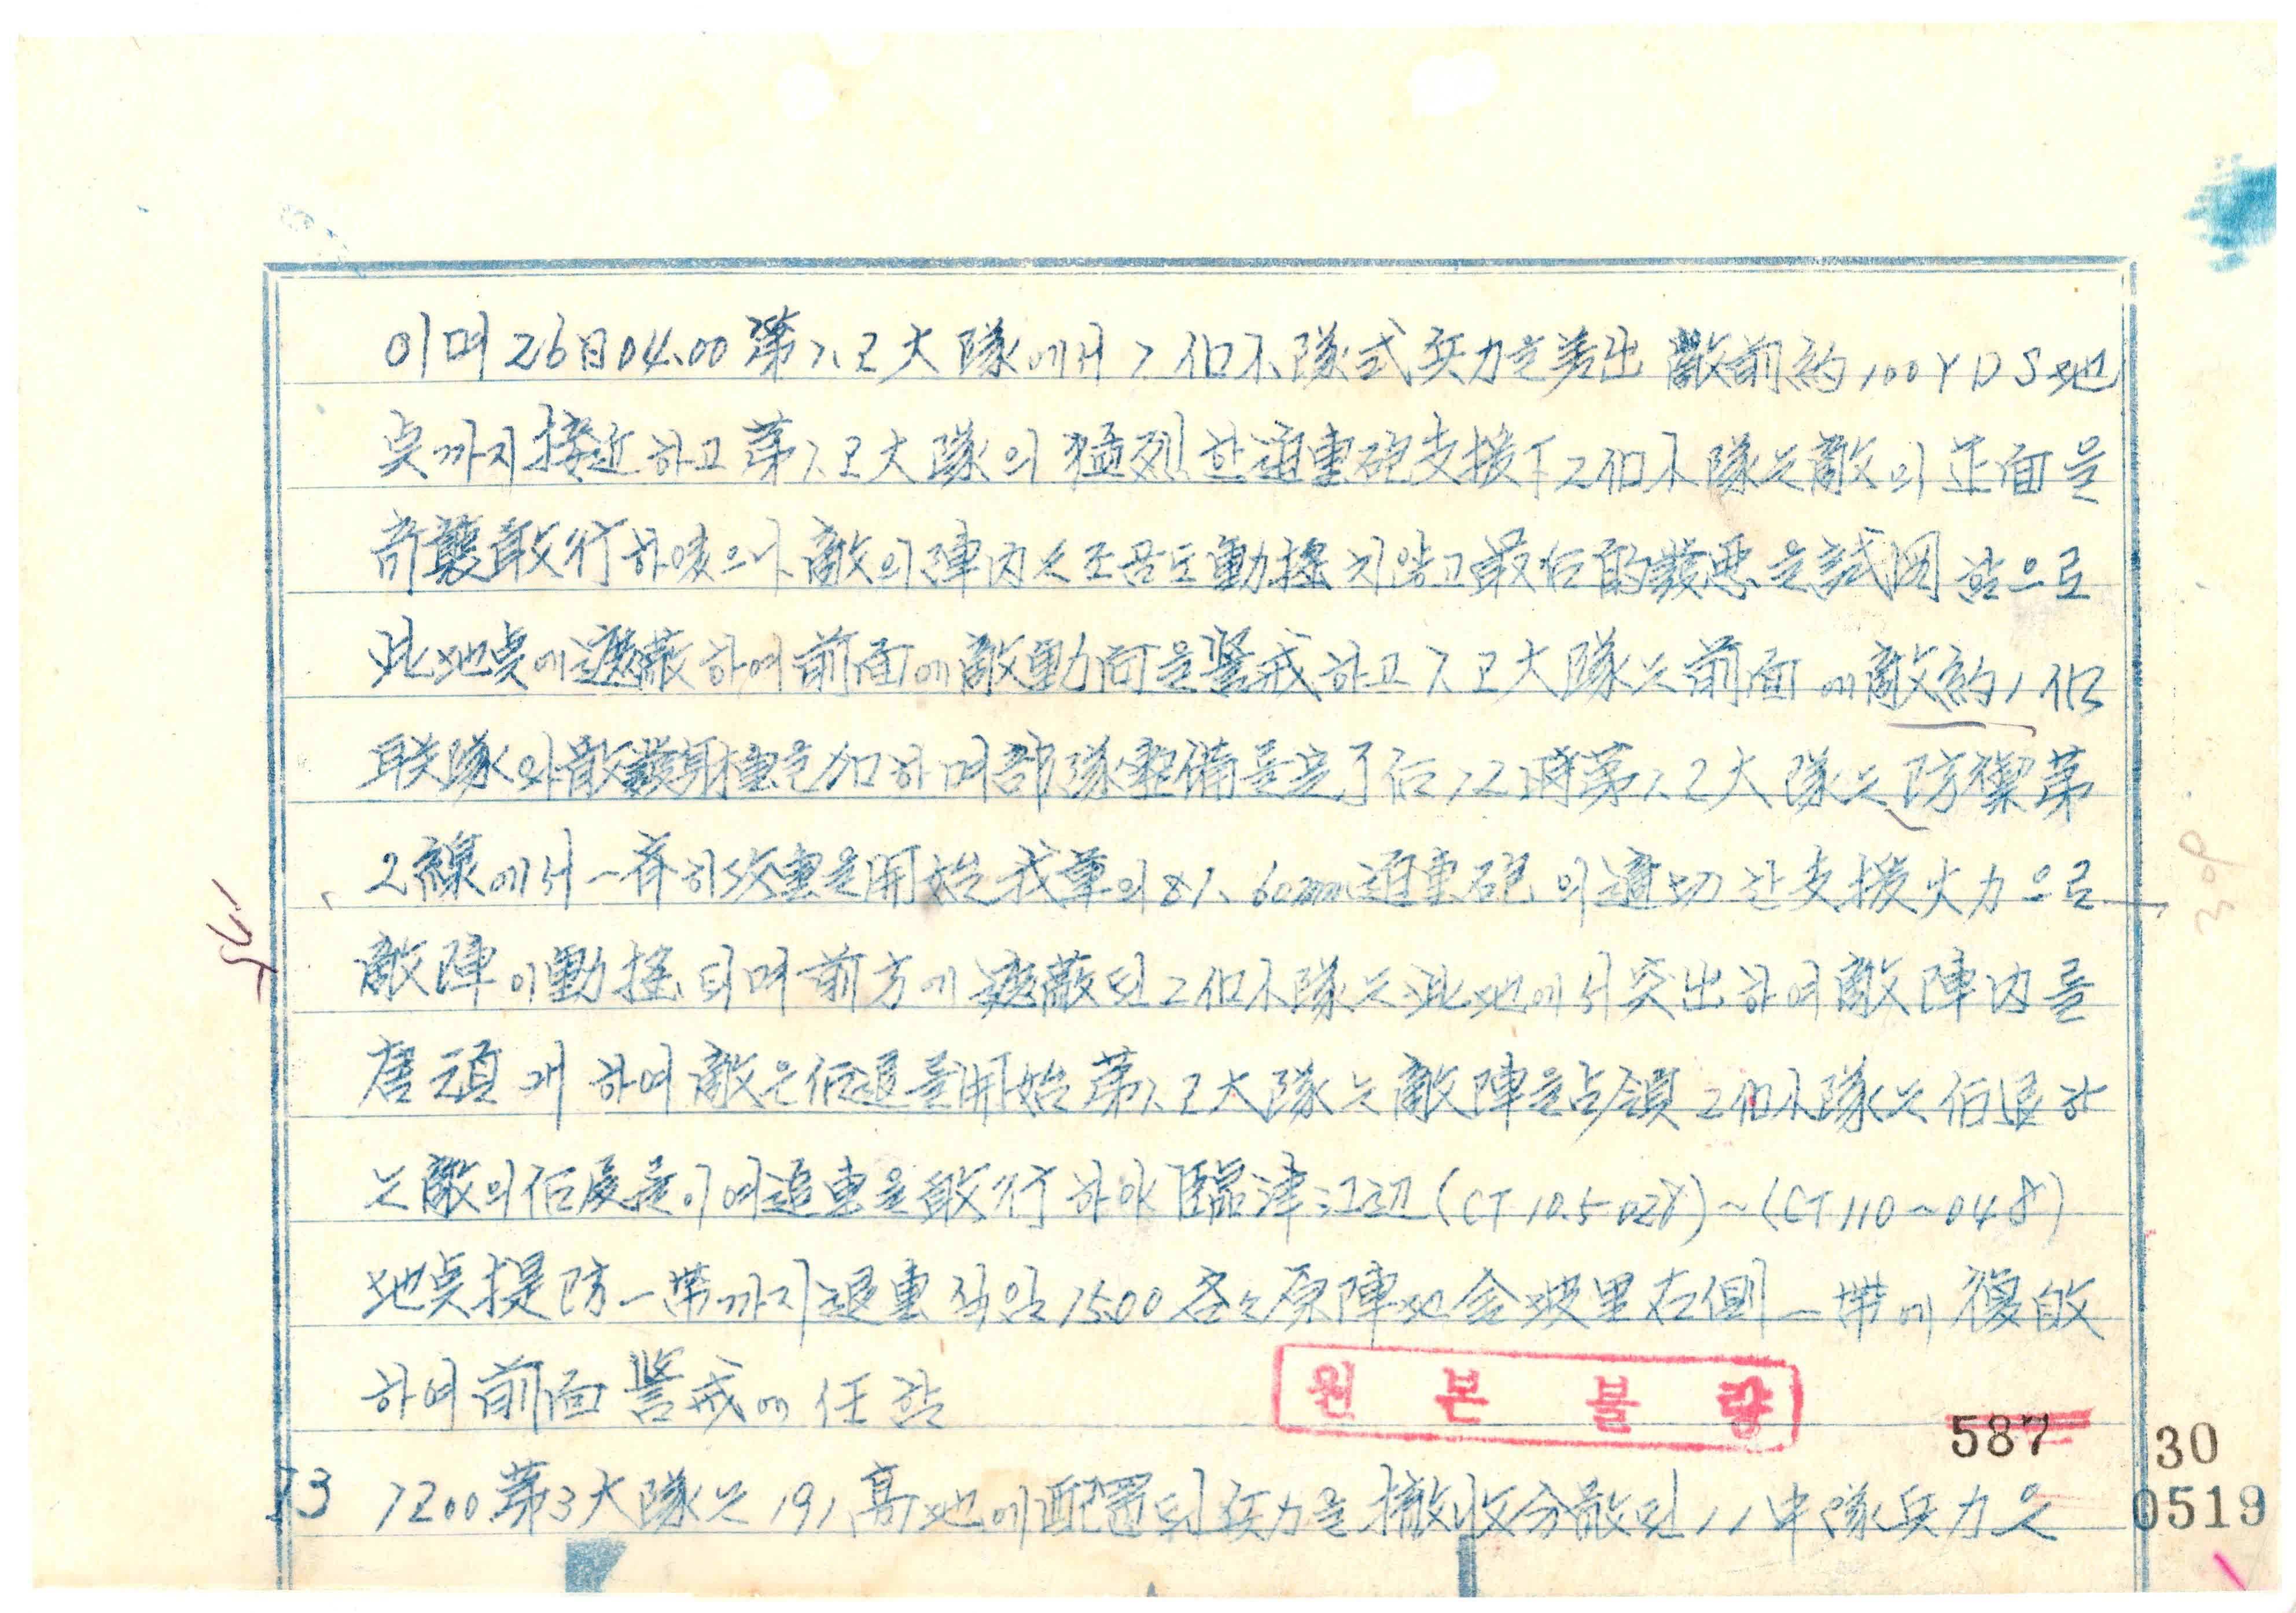 이며 26日 04.00 第1.2大隊에서 2個小隊式 兵力을 差出 敵前約 100YDS 地
点까지 接近하고 第1.2大隊의 猛烈한 迫擊砲支援下 2個小隊는 敵의 正面을
奇襲敢行하였으나 敵의 陣内는 조금도 動搖치 않고 最后的發惡을 試圖함으로
此地点에 遮蔽하여 前面에 敵動向을 警戒하고 1.2大隊는 前面에 敵約 1個
联隊와 散發射擊을 加하며 部隊整備를 完了后 12時 第1.2大隊는 防禦第
2線에서 一斉히 攻擊을 開始 我軍의 81、60mm 迫擊砲의 適切한 支援火力으로
敵陣이 動搖되며 前方에 遮蔽된 2個小隊는 此地에서 突出하여 敵陣内를
唐頑개 하여 敵은 后退를 開始 第1.2大隊는 敵陣을 占領 2個小隊는 后退하
는 敵의 后尾를 이여 追擊을 敢行하야 臨津江辺 (CT 10.5-028)~(CT 110~048)
地点 提防一帶까지 追擊 식임 1500 各々 原陣地 金坡里 右側一帶에 復故
하여 前面 警戒에 任함
원본불량
587
30
73 1200 第3大隊는 191高地에 配置된 兵力을 撤收 分散된 11中隊 兵力은
0519